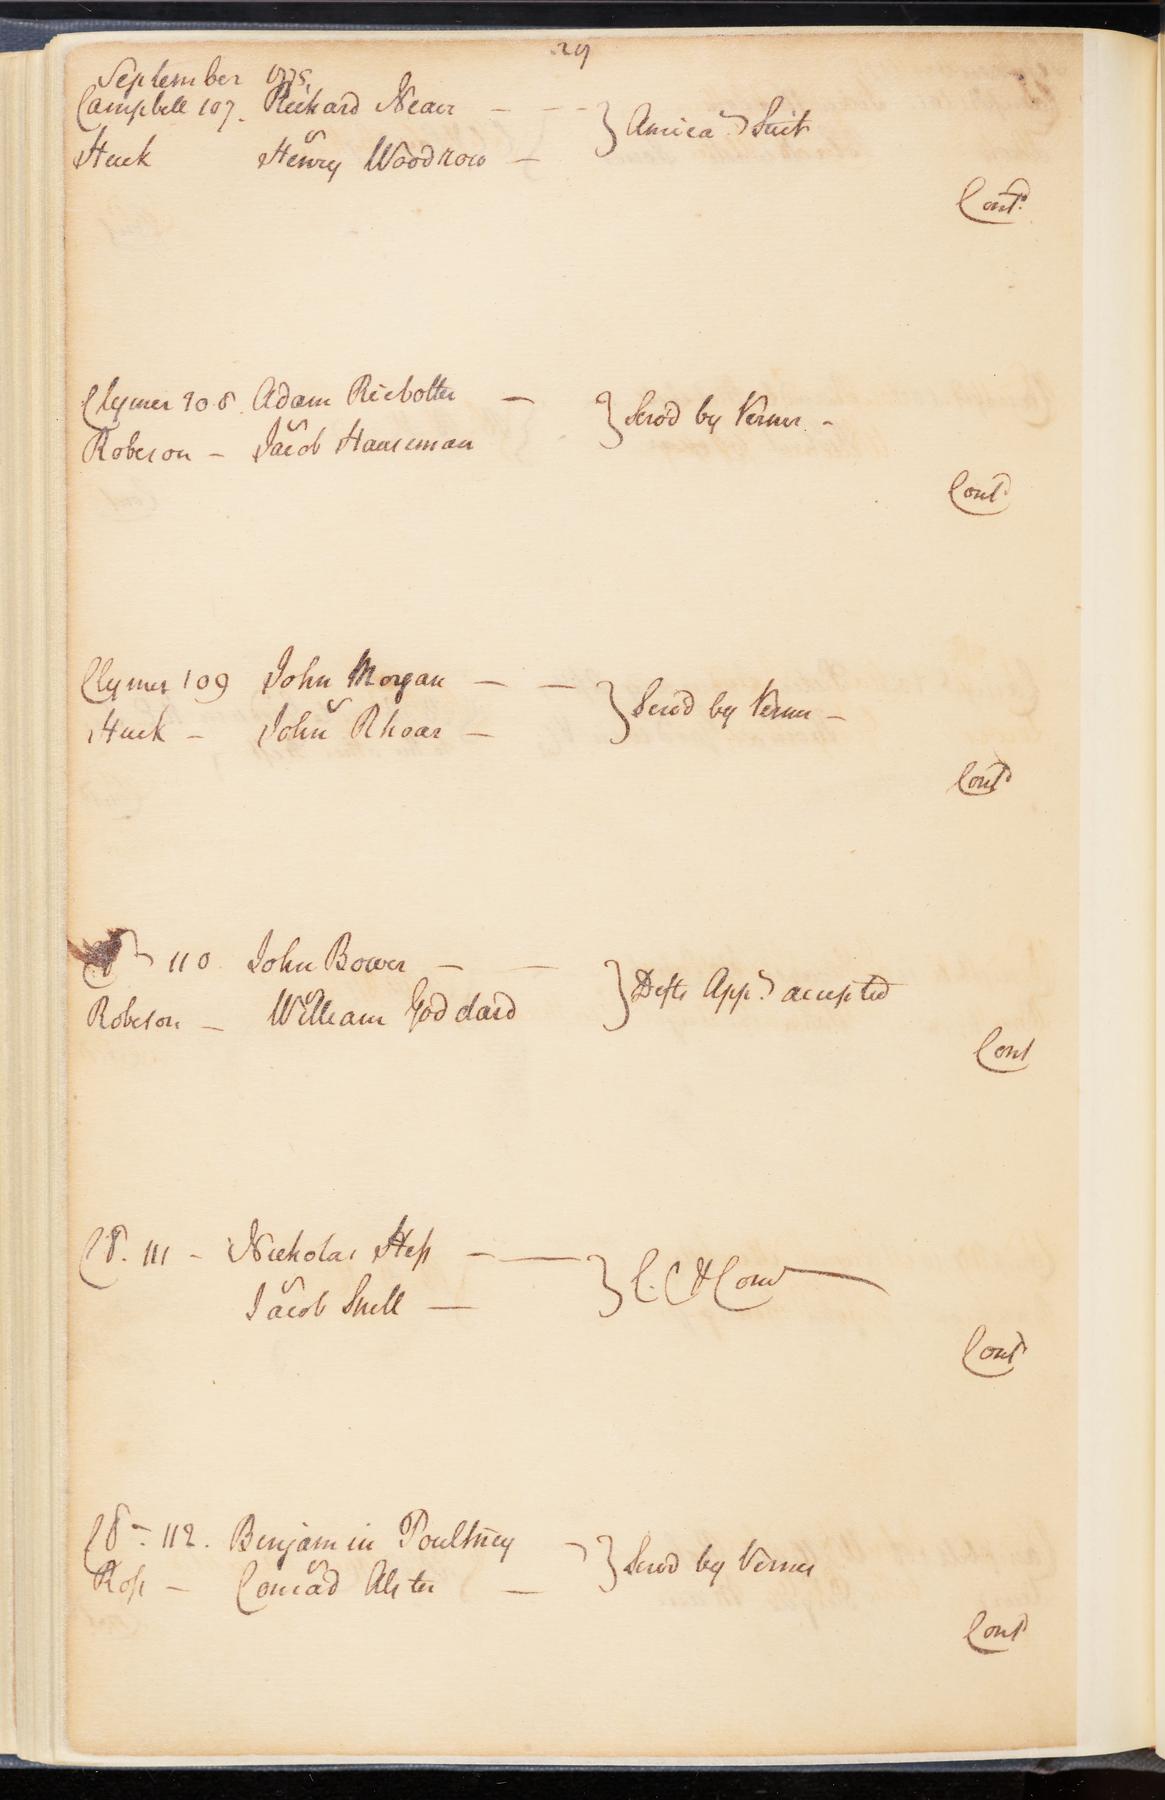 29
September 1775.
Campbell 107. Richard Near - - - } Amica. Suit
Huck v Henry Woodrow -
Cont.
Clymer 108. Adam Riebolter - } Servd by Verner. -
Roberson - v Jacob Hauseman
Cont
Clymer 109 John Morgan - - } Servd by Verner -
Huck - v John Rhoar -
Cont
110 John Bower - - } Defts App. accepted
Roberson - v William Goddard
Cont
111 - Nicholas Hess - - } C. C &
v Jacob Snell -
Cont
112. Benjamin Poultney } Servd by Verner
Ross - v Conrad Alster -
Cont